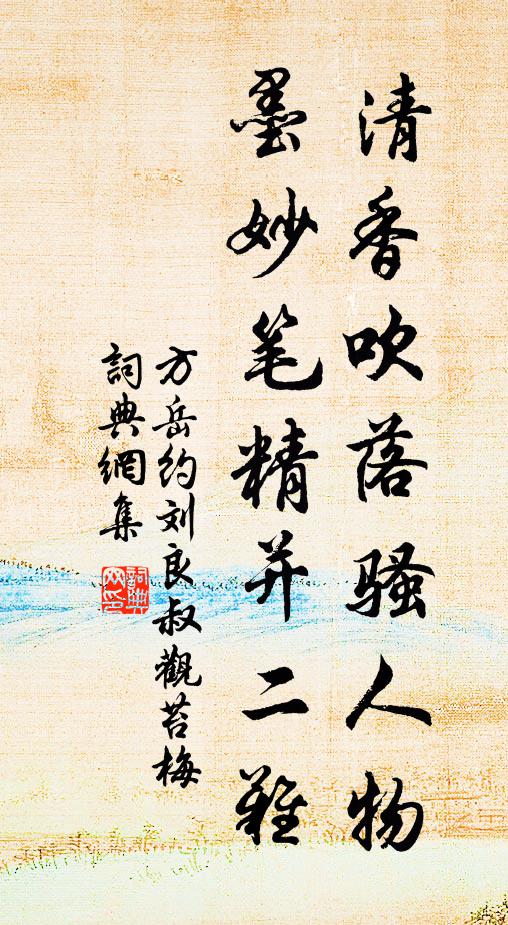 清香吹落骚人物
墨妙笔精并二难
方岳约刘良叔觀苔梅
詞典網集